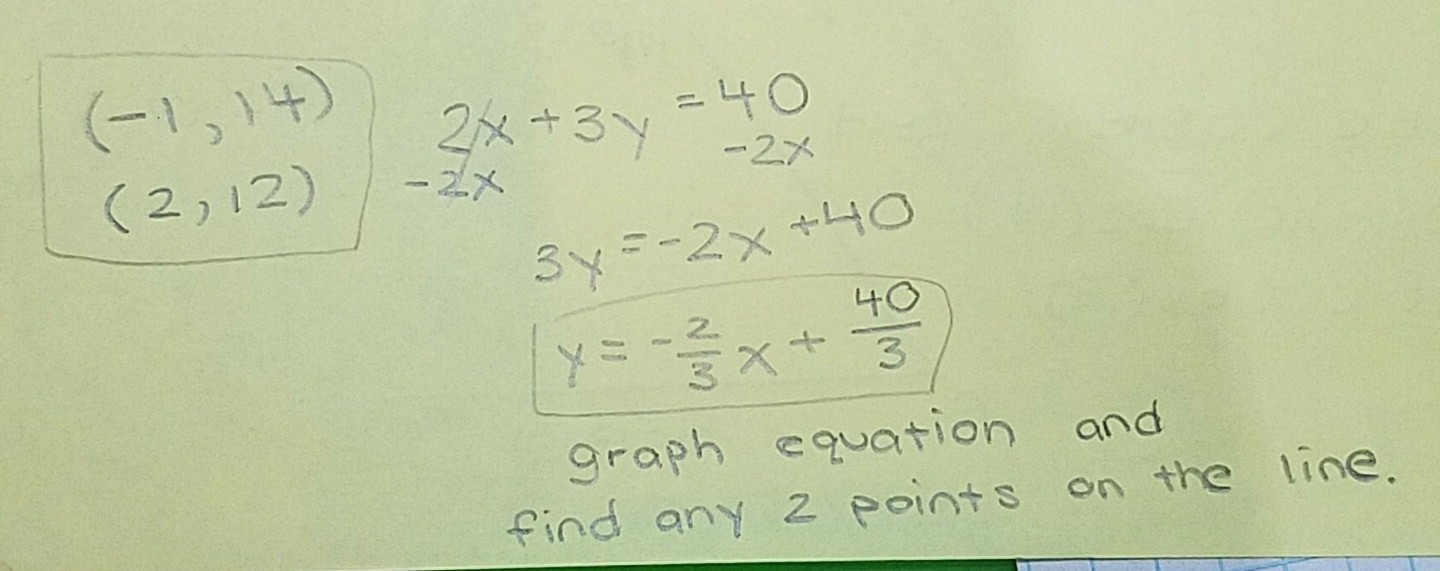 (-1, 14)
(2, 12)
2x + 3y = 40
-2x -2x
3y = -2x + 40
y = -2/3 x + 40/3
graph equation and
find any 2 points on the line.